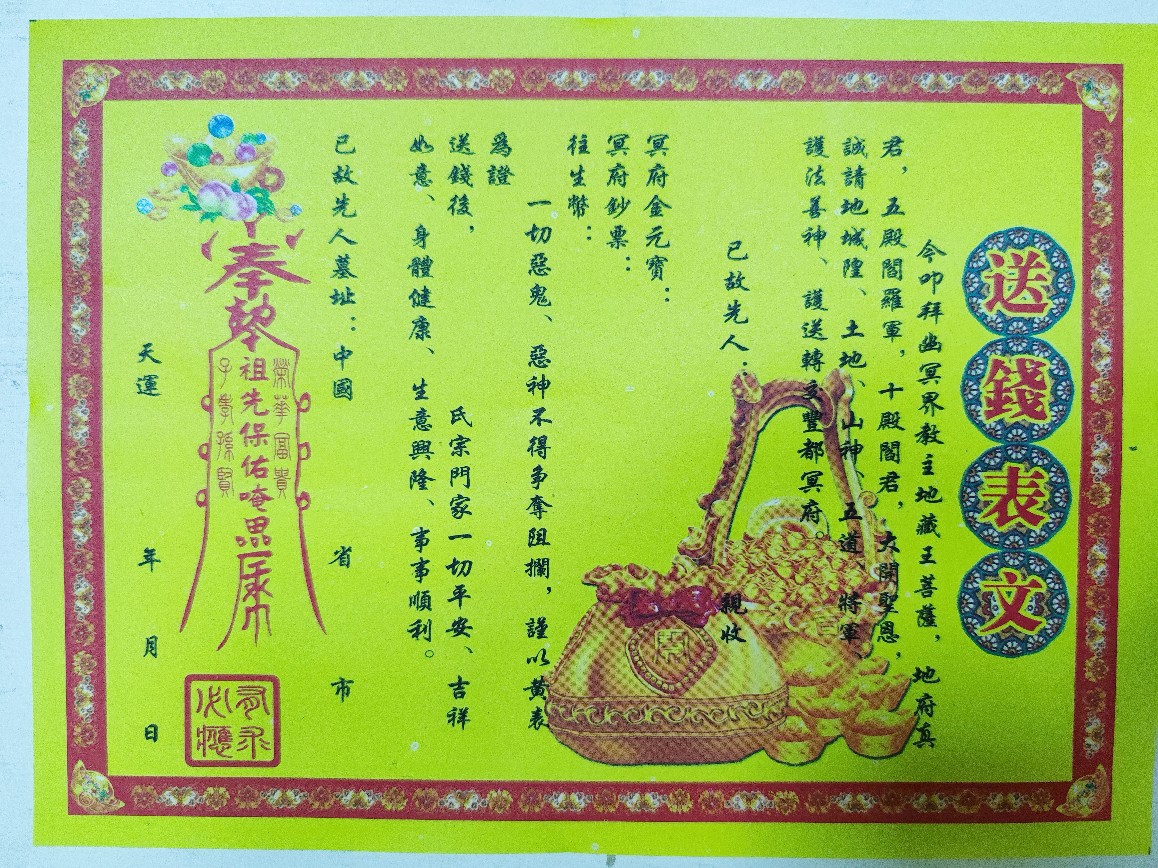 送錢表文
今叩拜幽冥界教主地藏王菩薩，地府真
君，五殿閻羅軍，十殿閻君，大開聖恩，
誠請地城隍、土地、山神、五道、將軍、
護法善神、護送轉交豐都冥府。
已故先人： 親收
冥府金元寶：
冥府鈔票：
往生幣：
一切惡鬼、惡神不得争奪阻攔，謹以黄表
爲證
送錢後， 氏宗門家一切平安、吉祥
如意、身體健康、生意興隆、事事順利。
已故先人墓址：中國 省 市
奉
榮華富貴
祖先保佑唵
子孝孫賢
有求
必應
天運 年 月 日